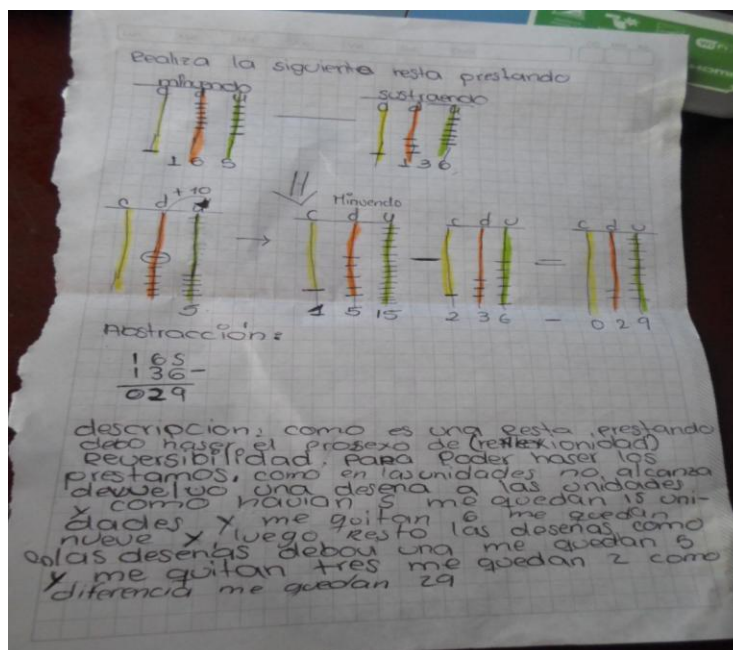 Realiza la siguiente resta prestando
minuendo
sustraendo
c d u
c d u
1 6 5
1 3 6
+10
Minuendo
c d
c d u
c d u
c d u
5
1 5 15
2 3 6
- 0 2 9
Abstracción:
1 6 5
1 3 6 -
0 2 9
descripcion: como es una resta prestando
debo haser el prosexo de (reflexionidad)
Reversibilidad. Para Poder haser los
prestamos, como en las unidades no alcanza
devuelvo una desena a las unidades
y como havian 5 me quedan 15 uni-
dades y me quitan 6 me quedan
nueve y luego Resto las desenas como
las desenas debou una me quedan 5
y me quitan tres me quedan 2 como
diferencia me quedan 29